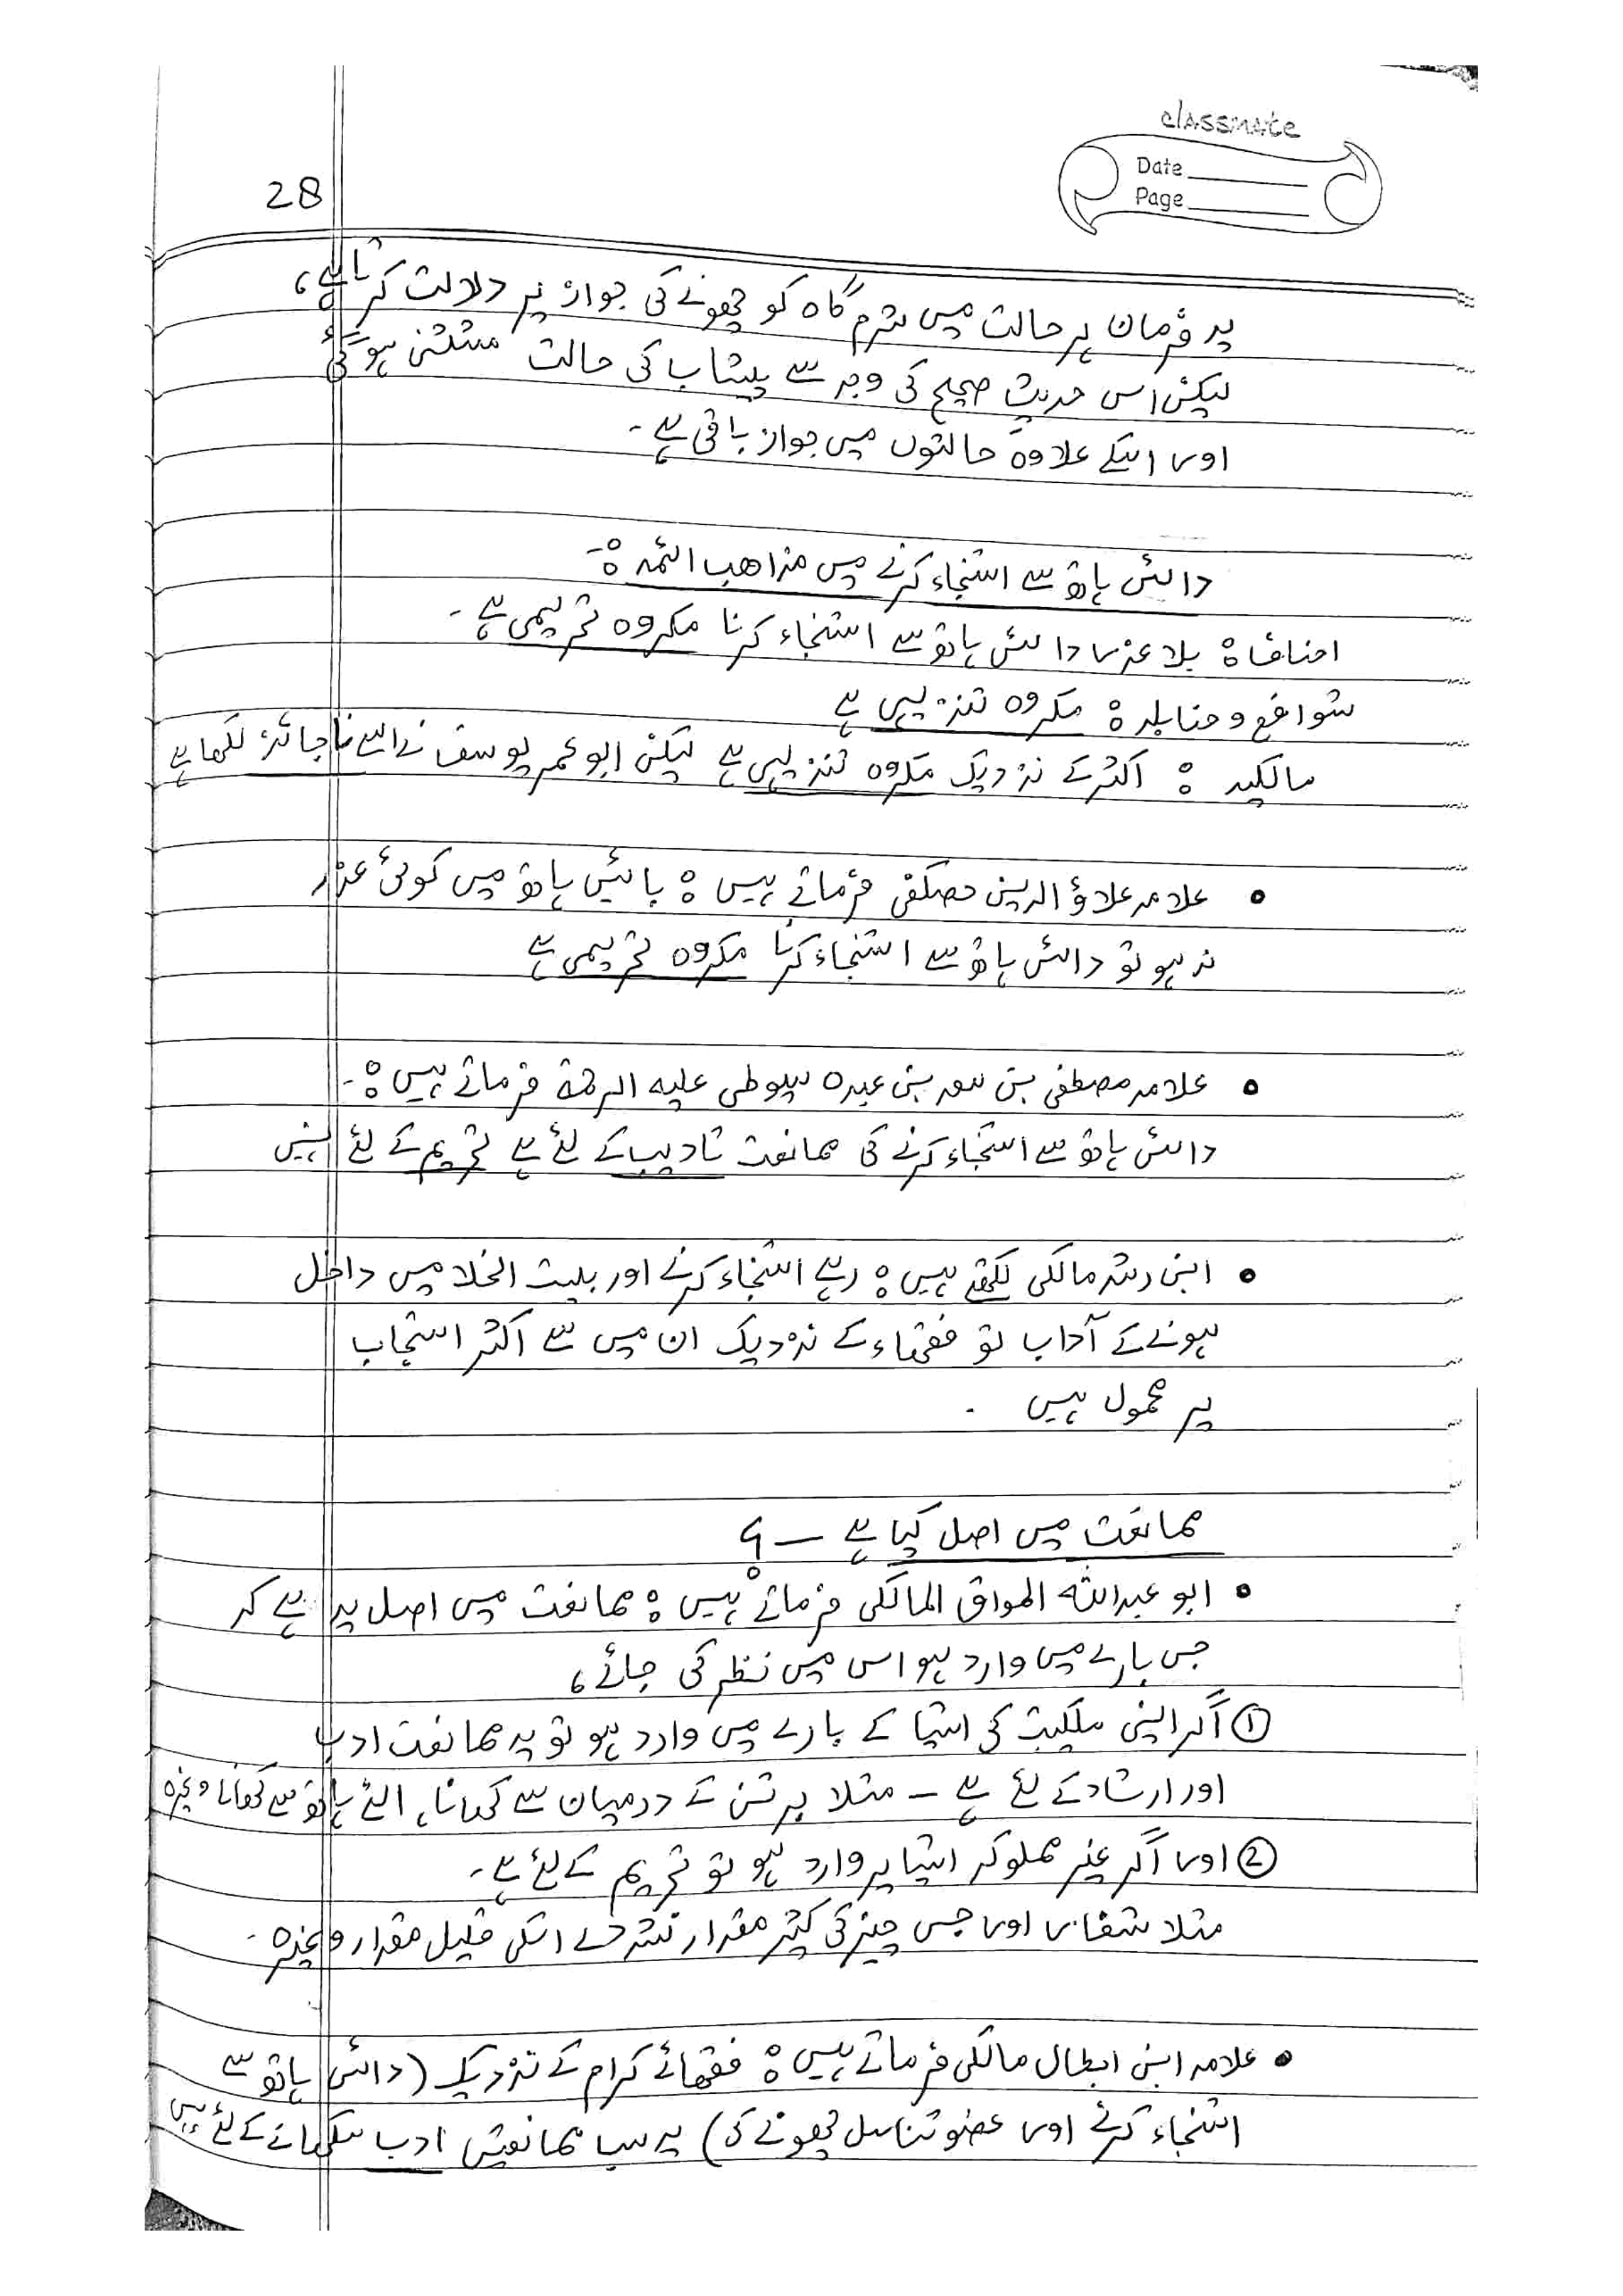 classmate
Date
Page
28
یہ فرمان ہر حالت میں شرم گاہ کو چھونے کی جواز پر دلالت کرتا ہے،
لیکن اس حدیث صحیح کی وجہ سے پیشاب کی حالت مستثنی ہو گئی
اور اسکے علاوہ حالتوں میں جواز باقی ہے۔
دائیں ہاتھ سے استنجاء کرنے میں مذاھب ائمہ :-
احناف : بلا عذر دائیں ہاتھ سے استنجاء کرنا مکروہ تحریمی ہے۔
شوافع و حنابلہ : مکروہ تنزیہی ہے
مالکیہ : اکثر کے نزدیک مکروہ تنزیہی ہے لیکن ابو عمر یوسف نے اسے ناجائز لکھا ہے
• علامہ علاؤ الدین حصکفی فرماتے ہیں : بائیں ہاتھ میں کوئی عذر
نہ ہو تو دائیں ہاتھ سے استنجاء کرنا مکروہ تحریمی ہے
• علامہ مصطفی بن سعد بن عبدہ سیوطی علیہ الرحمۃ فرماتے ہیں :-
دائیں ہاتھ سے استنجاء کرنے کی ممانعت تادیب کے لئے ہے تحریم کے لئے نہیں
• ابن رشد مالکی لکھتے ہیں : رہے استنجاء کرنے اور بیت الخلا میں داخل
ہونے کے آداب تو فقھاء کے نزدیک ان میں سے اکثر استحباب
پر محمول ہیں ۔
ممانعت میں اصل کیا ہے — ؟
• ابو عبداللہ المواق المالکی فرماتے ہیں : ممانعت میں اصل یہ ہے کہ
جس بارے میں وارد ہو اس میں نظر کی جائے،
① اگر اپنی ملکیت کی اشیا کے بارے میں وارد ہو تو یہ ممانعت ادب
اور ارشاد کے لئے ہے – مثلا برتن کے درمیان سے کھانا، الٹے ہاتھ سے کھانا وغیرہ
② اور اگر غیر مملوکہ اشیا پر وارد ہو تو تحریم کے لئے ہے۔
مثلا شغار اور جس چیز کی کثیر مقدار نشہ دے اسکی قلیل مقدار وغیرہ ۔
• علامہ ابن ابطال مالکی فرماتے ہیں : فقھائے کرام کے نزدیک (دائیں ہاتھ سے
استنجاء کرنے اور عضو تناسل چھونے کی) یہ سب ممانعتیں ادب سکھانے کے لئے ہیں